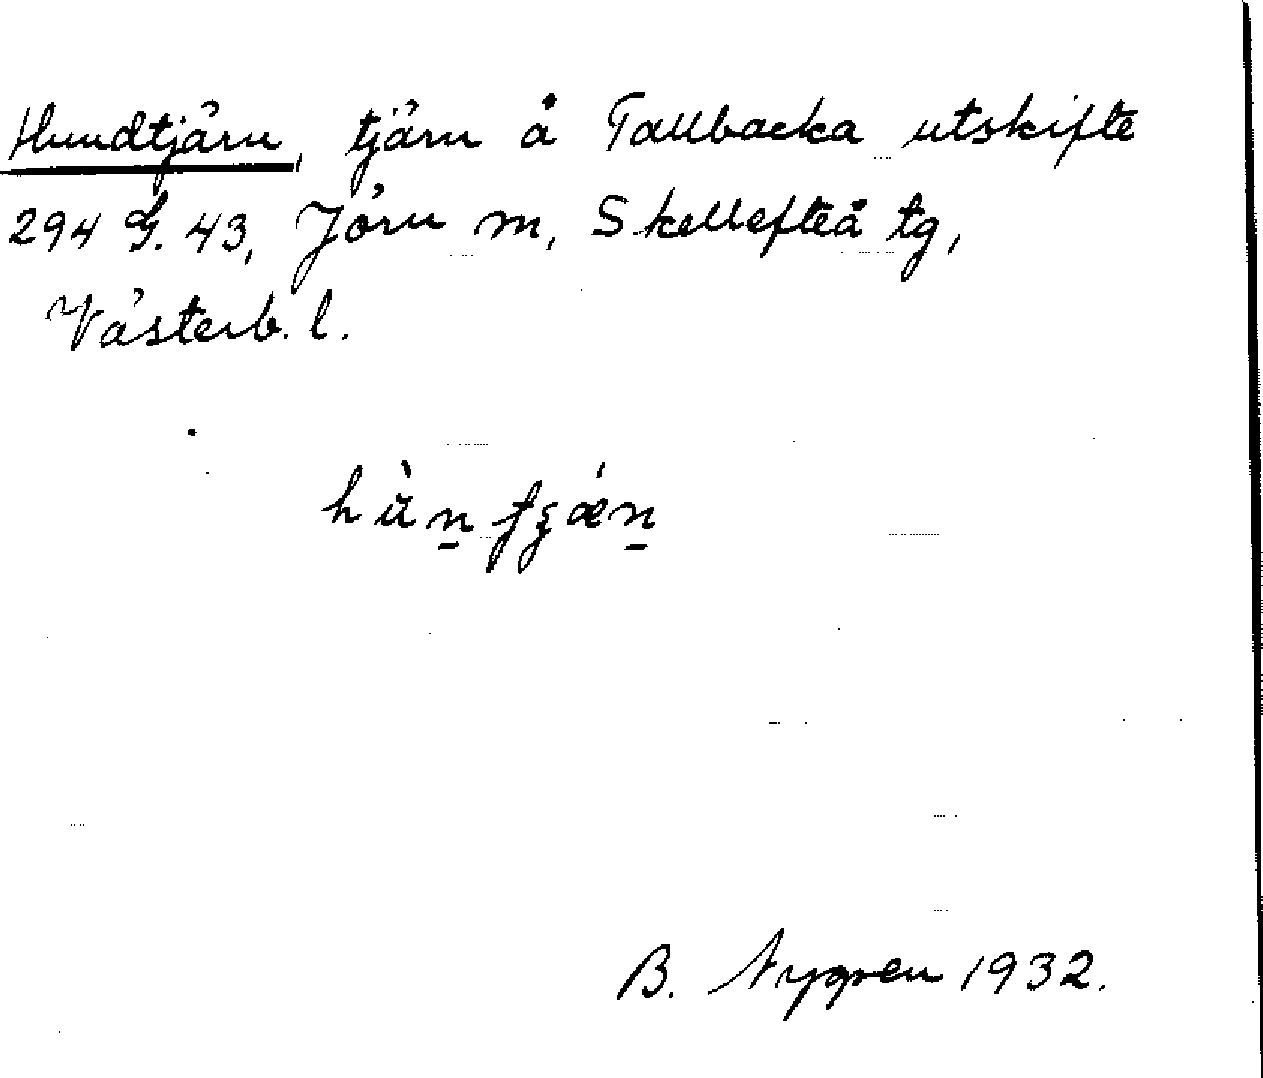 Hundtjärn, tjärn å Tallbacka utskifte
294 G. 43, Jörn m, Skellefteå tg,
Västerb. l.
B. Nygren 1932.